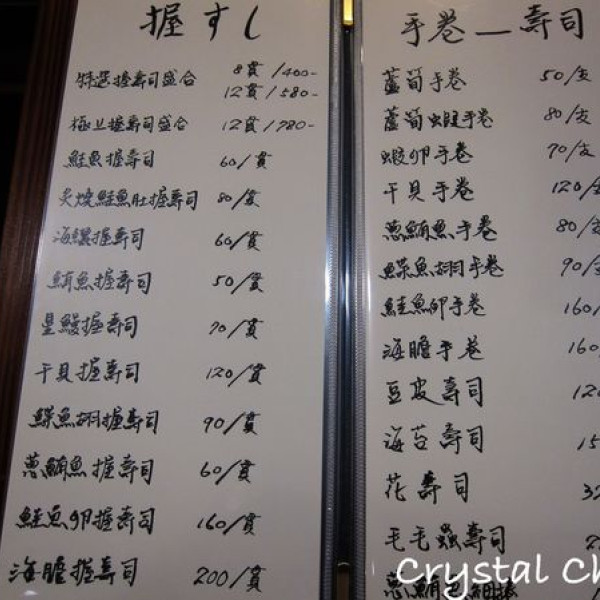 握すし
特選握壽司盛合 8貫/400-
12貫/580-
極上握壽司盛合 12貫/780-
鮭魚握壽司 60/貫
炙燒鮭魚肚握壽司 80/貫
海螺握壽司 60/貫
鮪魚握壽司 50/貫
星鰻握壽司 70/貫
干貝握壽司 120/貫
鰈魚翅握壽司 90/貫
蔥鮪魚握壽司 60/貫
鮭魚卵握壽司 160/貫
海膽握壽司 200/貫
手卷-壽司
蘆筍手卷 50/支
蘆筍蝦手卷 80/支
蝦卵手卷 70/支
干貝手卷 120/支
蔥鮪魚手卷 80/支
鰈魚翅手卷 90/支
鮭魚卵手卷 160/
海膽手卷 160
豆皮壽司 120
海苔壽司 15
花壽司 32
毛毛蟲壽司
蔥鮪魚細捲
Crystal Ch